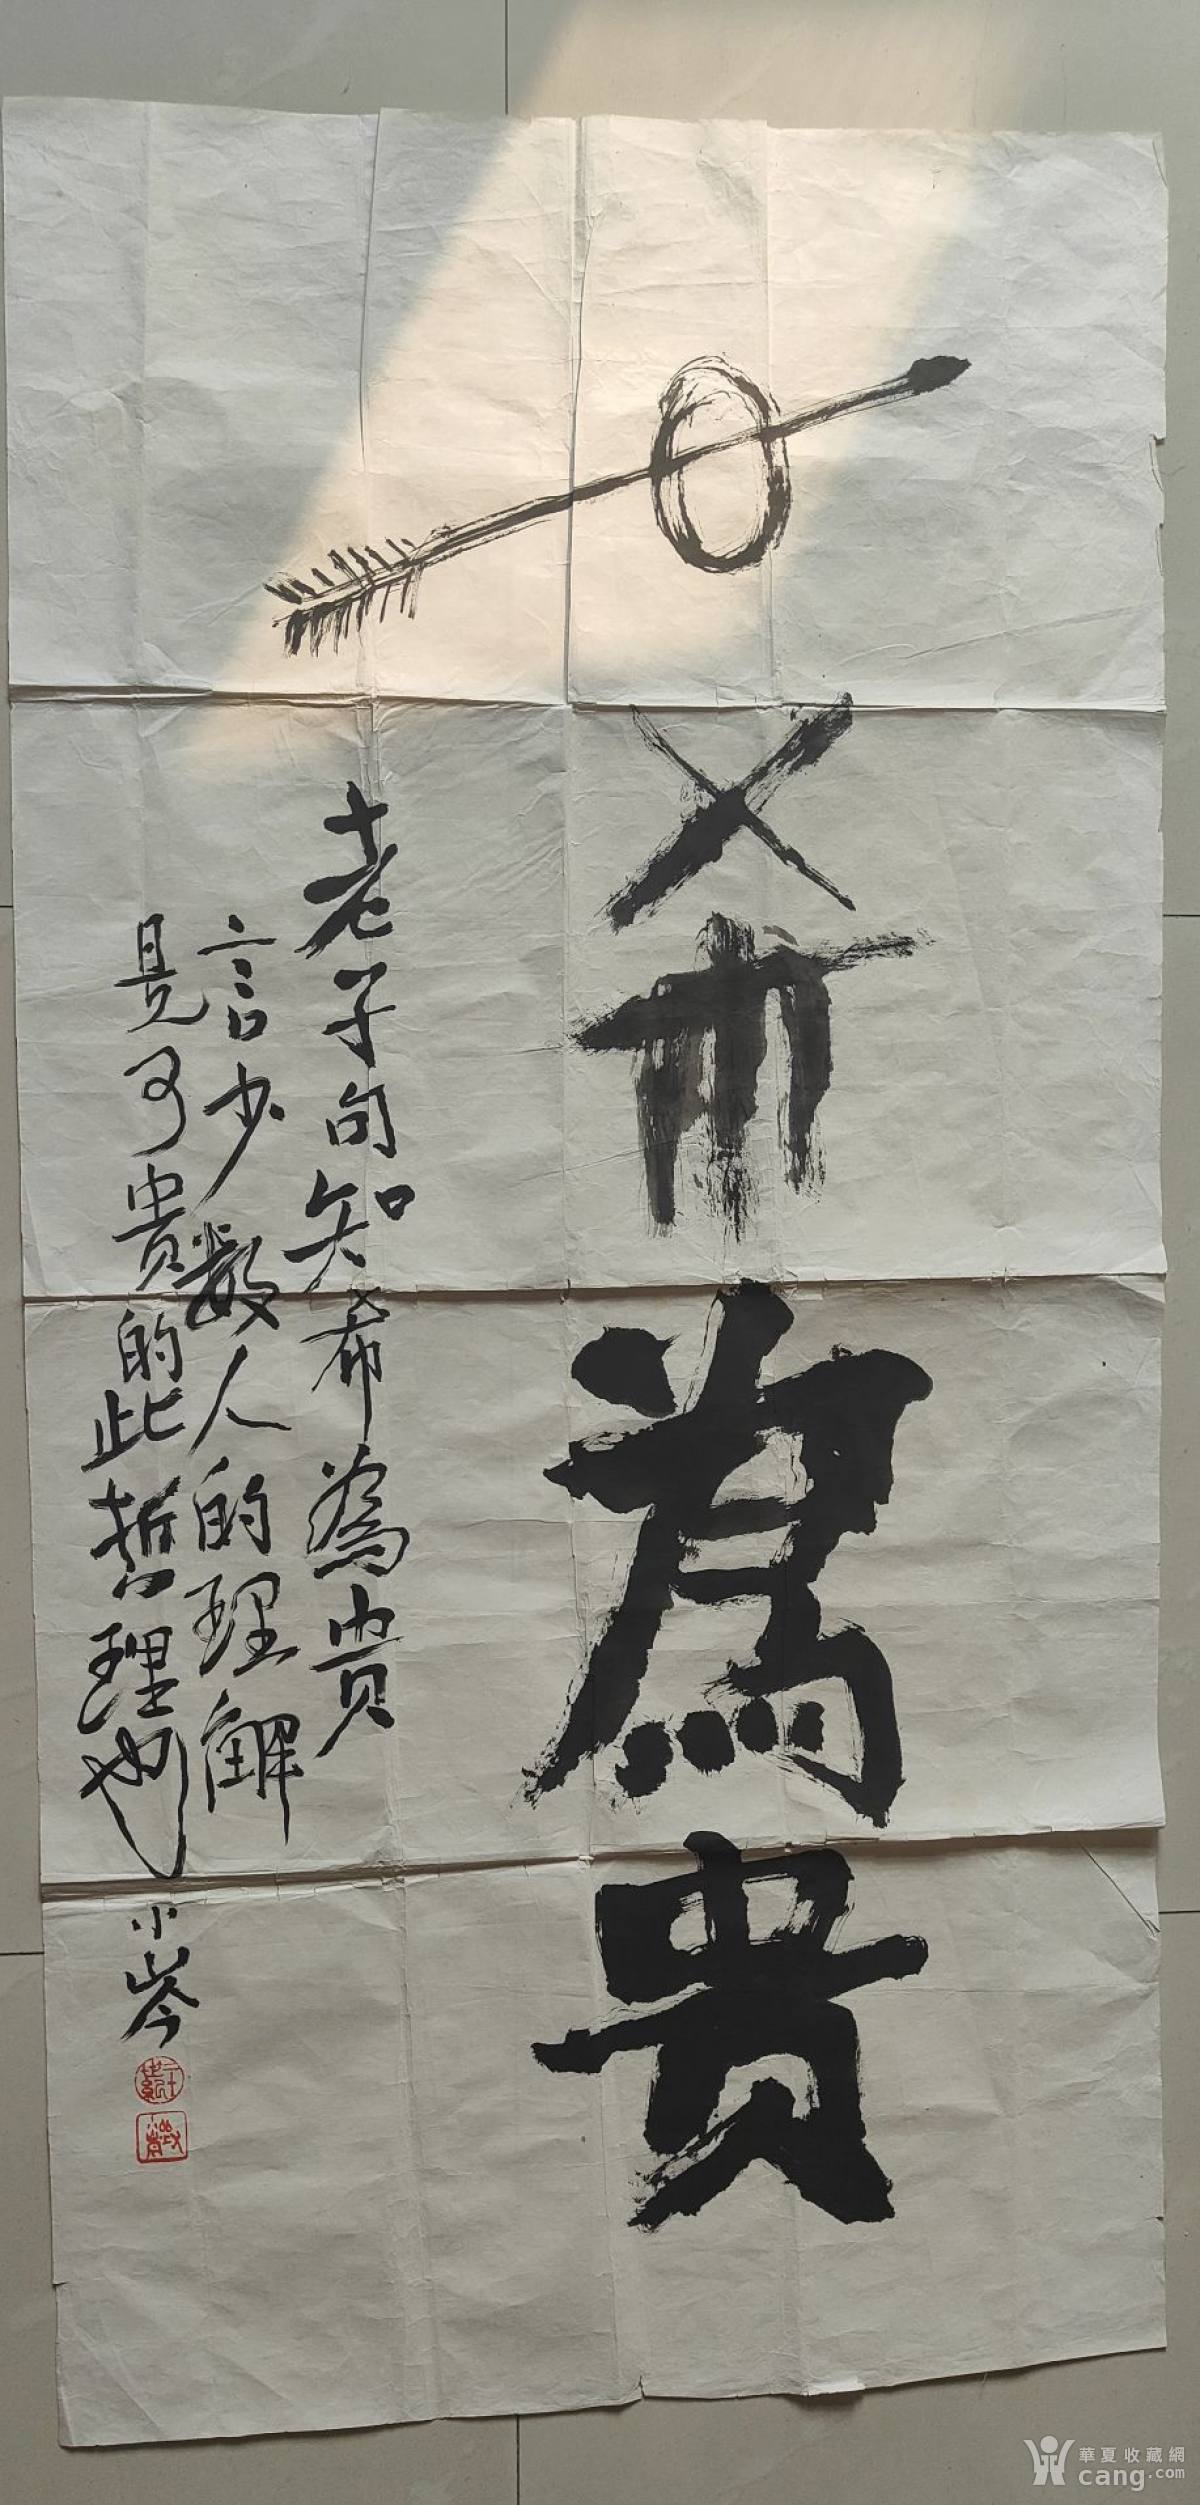 知希為贵
老子句知希為贵
言少数人的理解
是可贵的此哲理也
小岑
華夏收藏網
cang.com